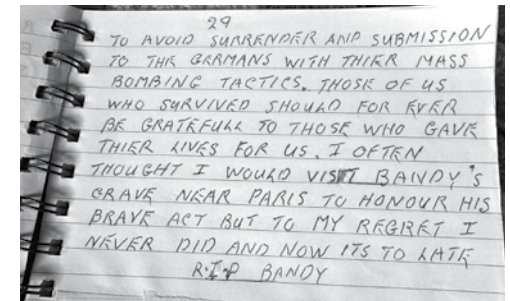 29
TO AVOID SURRENDER AND SUBMISSION
TO THE GERMANS WITH THIER MASS
BOMBING TACTICS. THOSE OF US
WHO SURVIVED SHOULD FOR EVER
BE GRATEFULL TO THOSE WHO GAVE
THIER LIVES FOR US. I OFTEN
THOUGHT I WOULD VISIT BANDY'S
GRAVE NEAR PARIS TO HONOUR HIS
BRAVE ACT BUT TO MY REGRET I
NEVER DID AND NOW ITS TO LATE
R.I.P BANDY